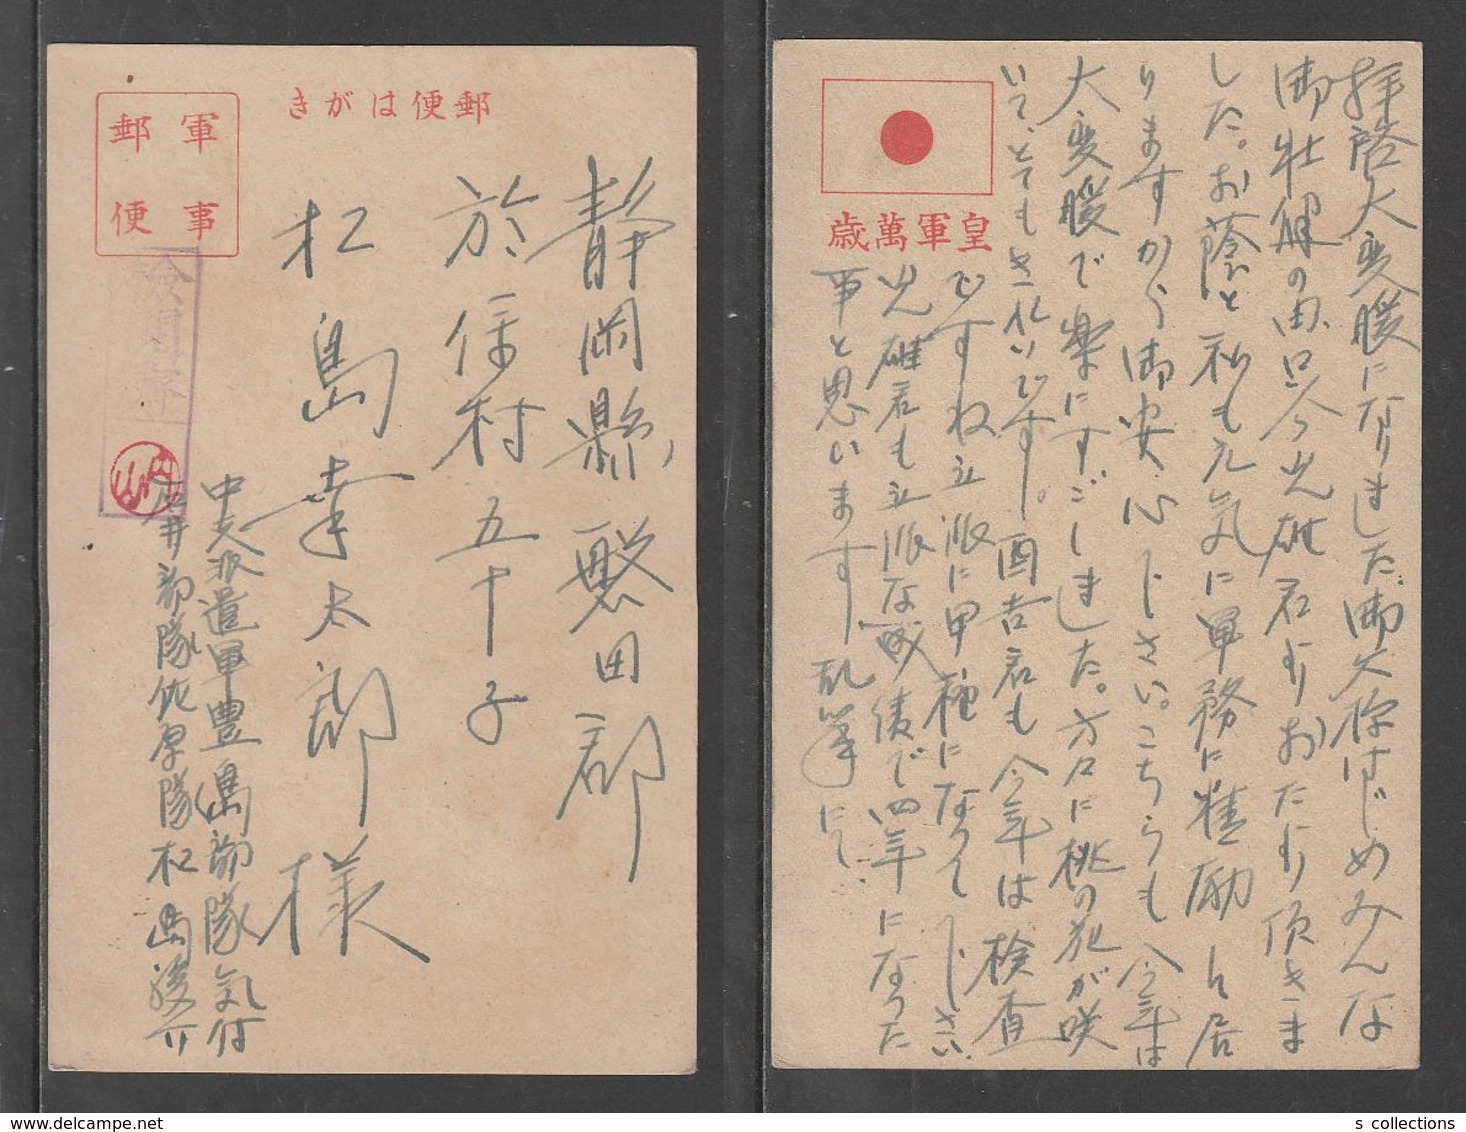 郵便はがき
軍事
郵便
静岡縣磐田郡
於保村五十子
松島幸太郎様
中支派遣軍豊嶋部隊気付
石井部隊佐原隊松島
皇軍萬歳
拝啓大変暖になりました。御父様はじめみんな
御壮健の由只今光雄君よりおたより頂きま
した。お蔭と私も元気に軍務に精励し居
りますから御安心下さい。こちらも今年は
大変暖で楽にすごしました。方々に桃の花が咲
いて、とてもきれいです。酉吉君も今年は検査
ですね立派に甲種になって下さい
光雄君も立派な成績で四年になった
事と思います 乱筆にて
s collections